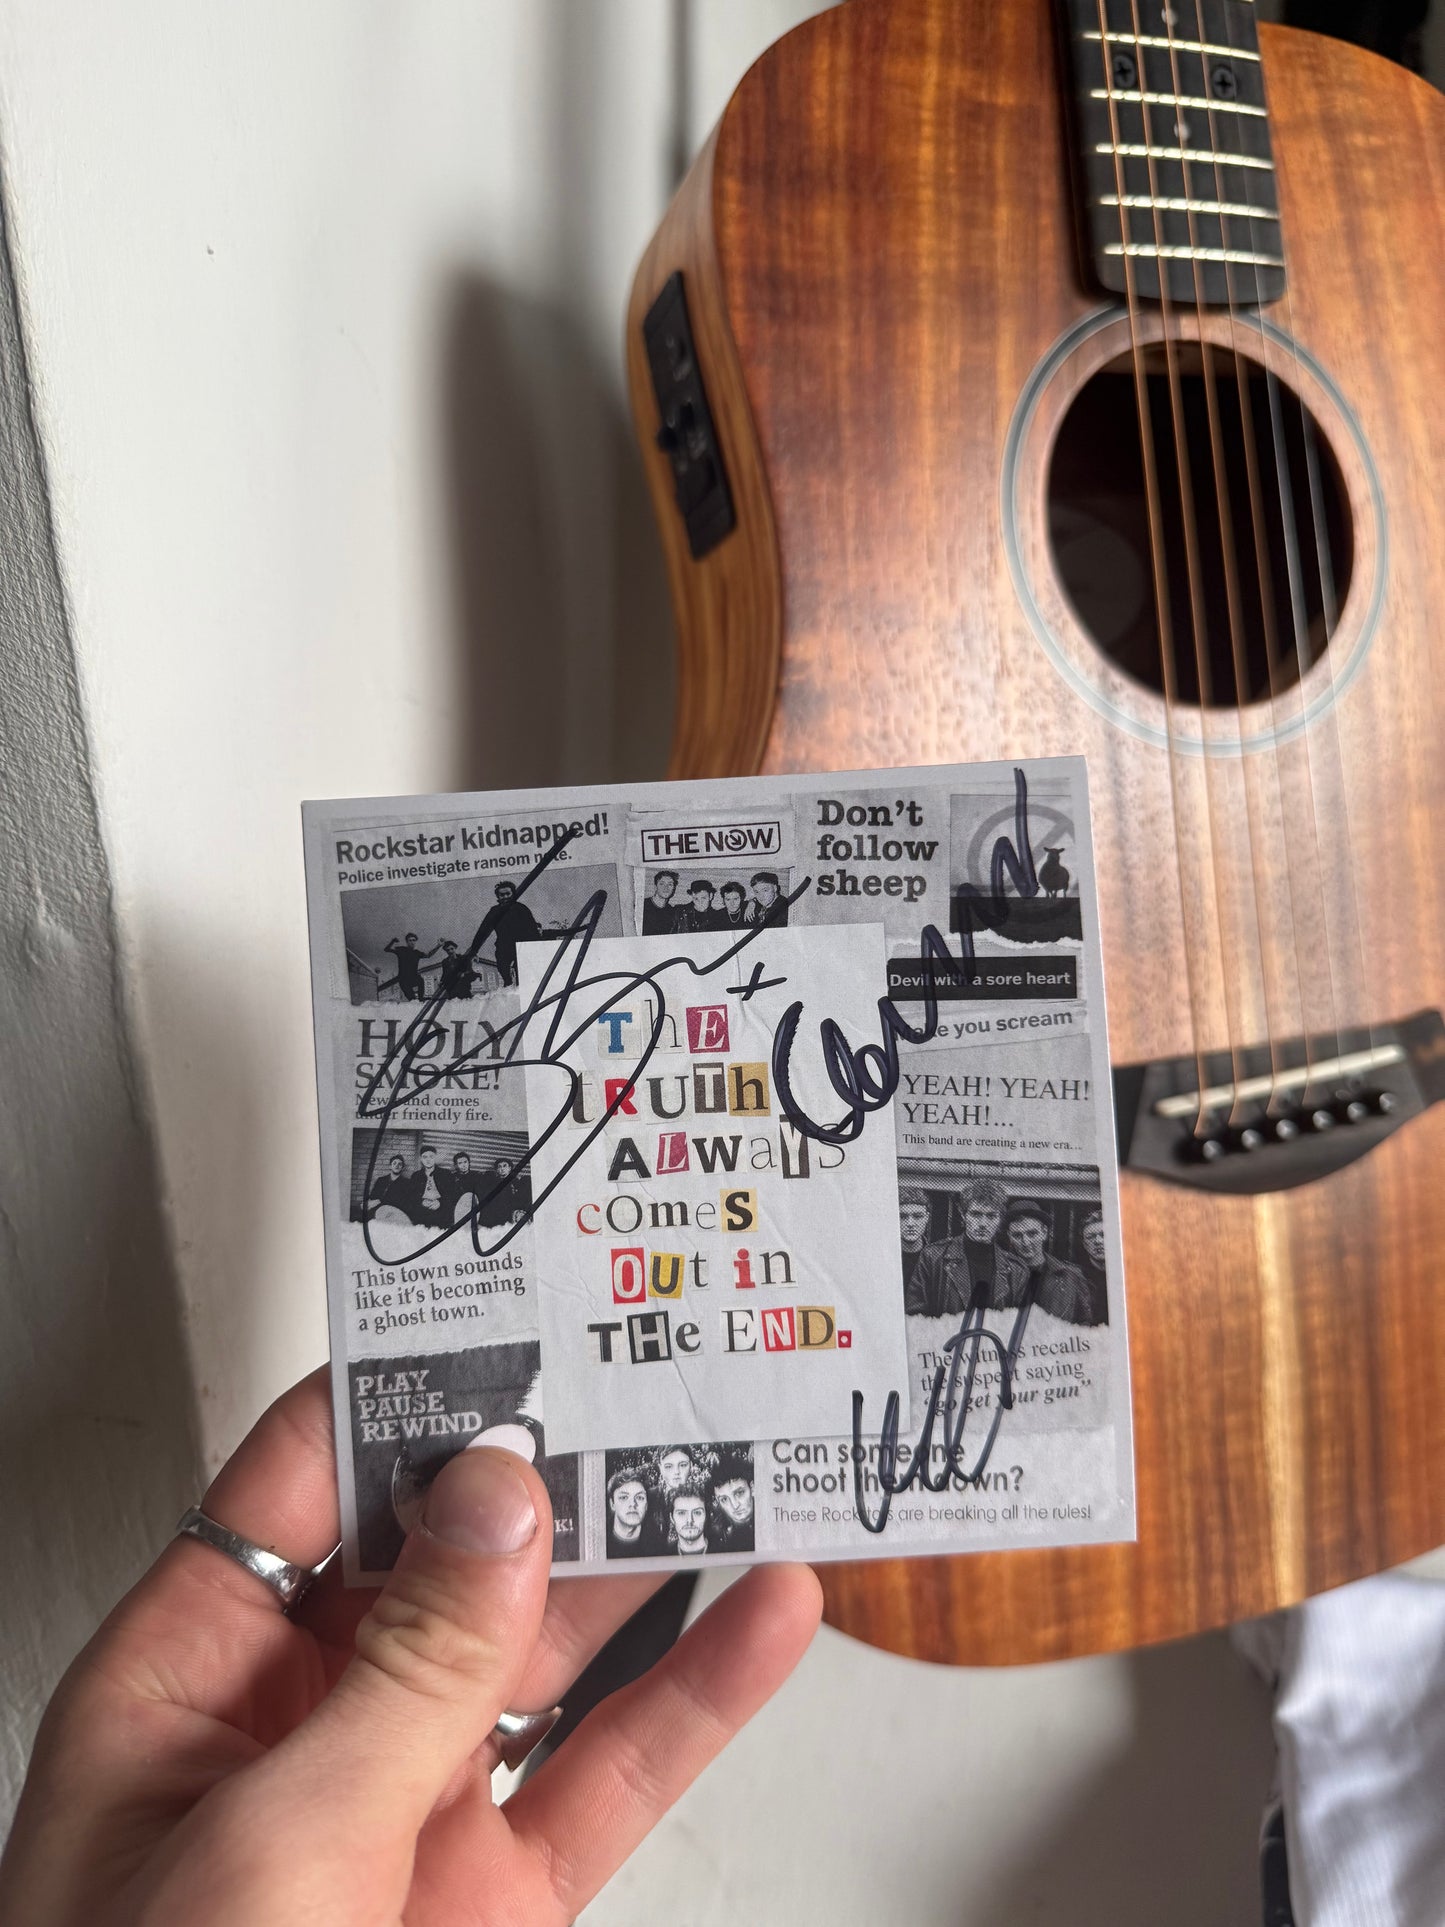 Rockstar kidnapped!
Police investigate ransom note.
THE NOW
Don't
follow
sheep
Devil with a sore heart
Make you scream
HOLY
SMOKE!
New band comes
under friendly fire.
THE
tRUTh
ALWaYS
cOmeS
OUt in
THe END.
YEAH! YEAH!
YEAH!...
This band are creating a new era...
This town sounds
like it's becoming
a ghost town.
The witness recalls
the suspect saying
"go get your gun"
PLAY
PAUSE
REWIND
K!
Can someone
shoot them down?
These Rockstars are breaking all the rules!